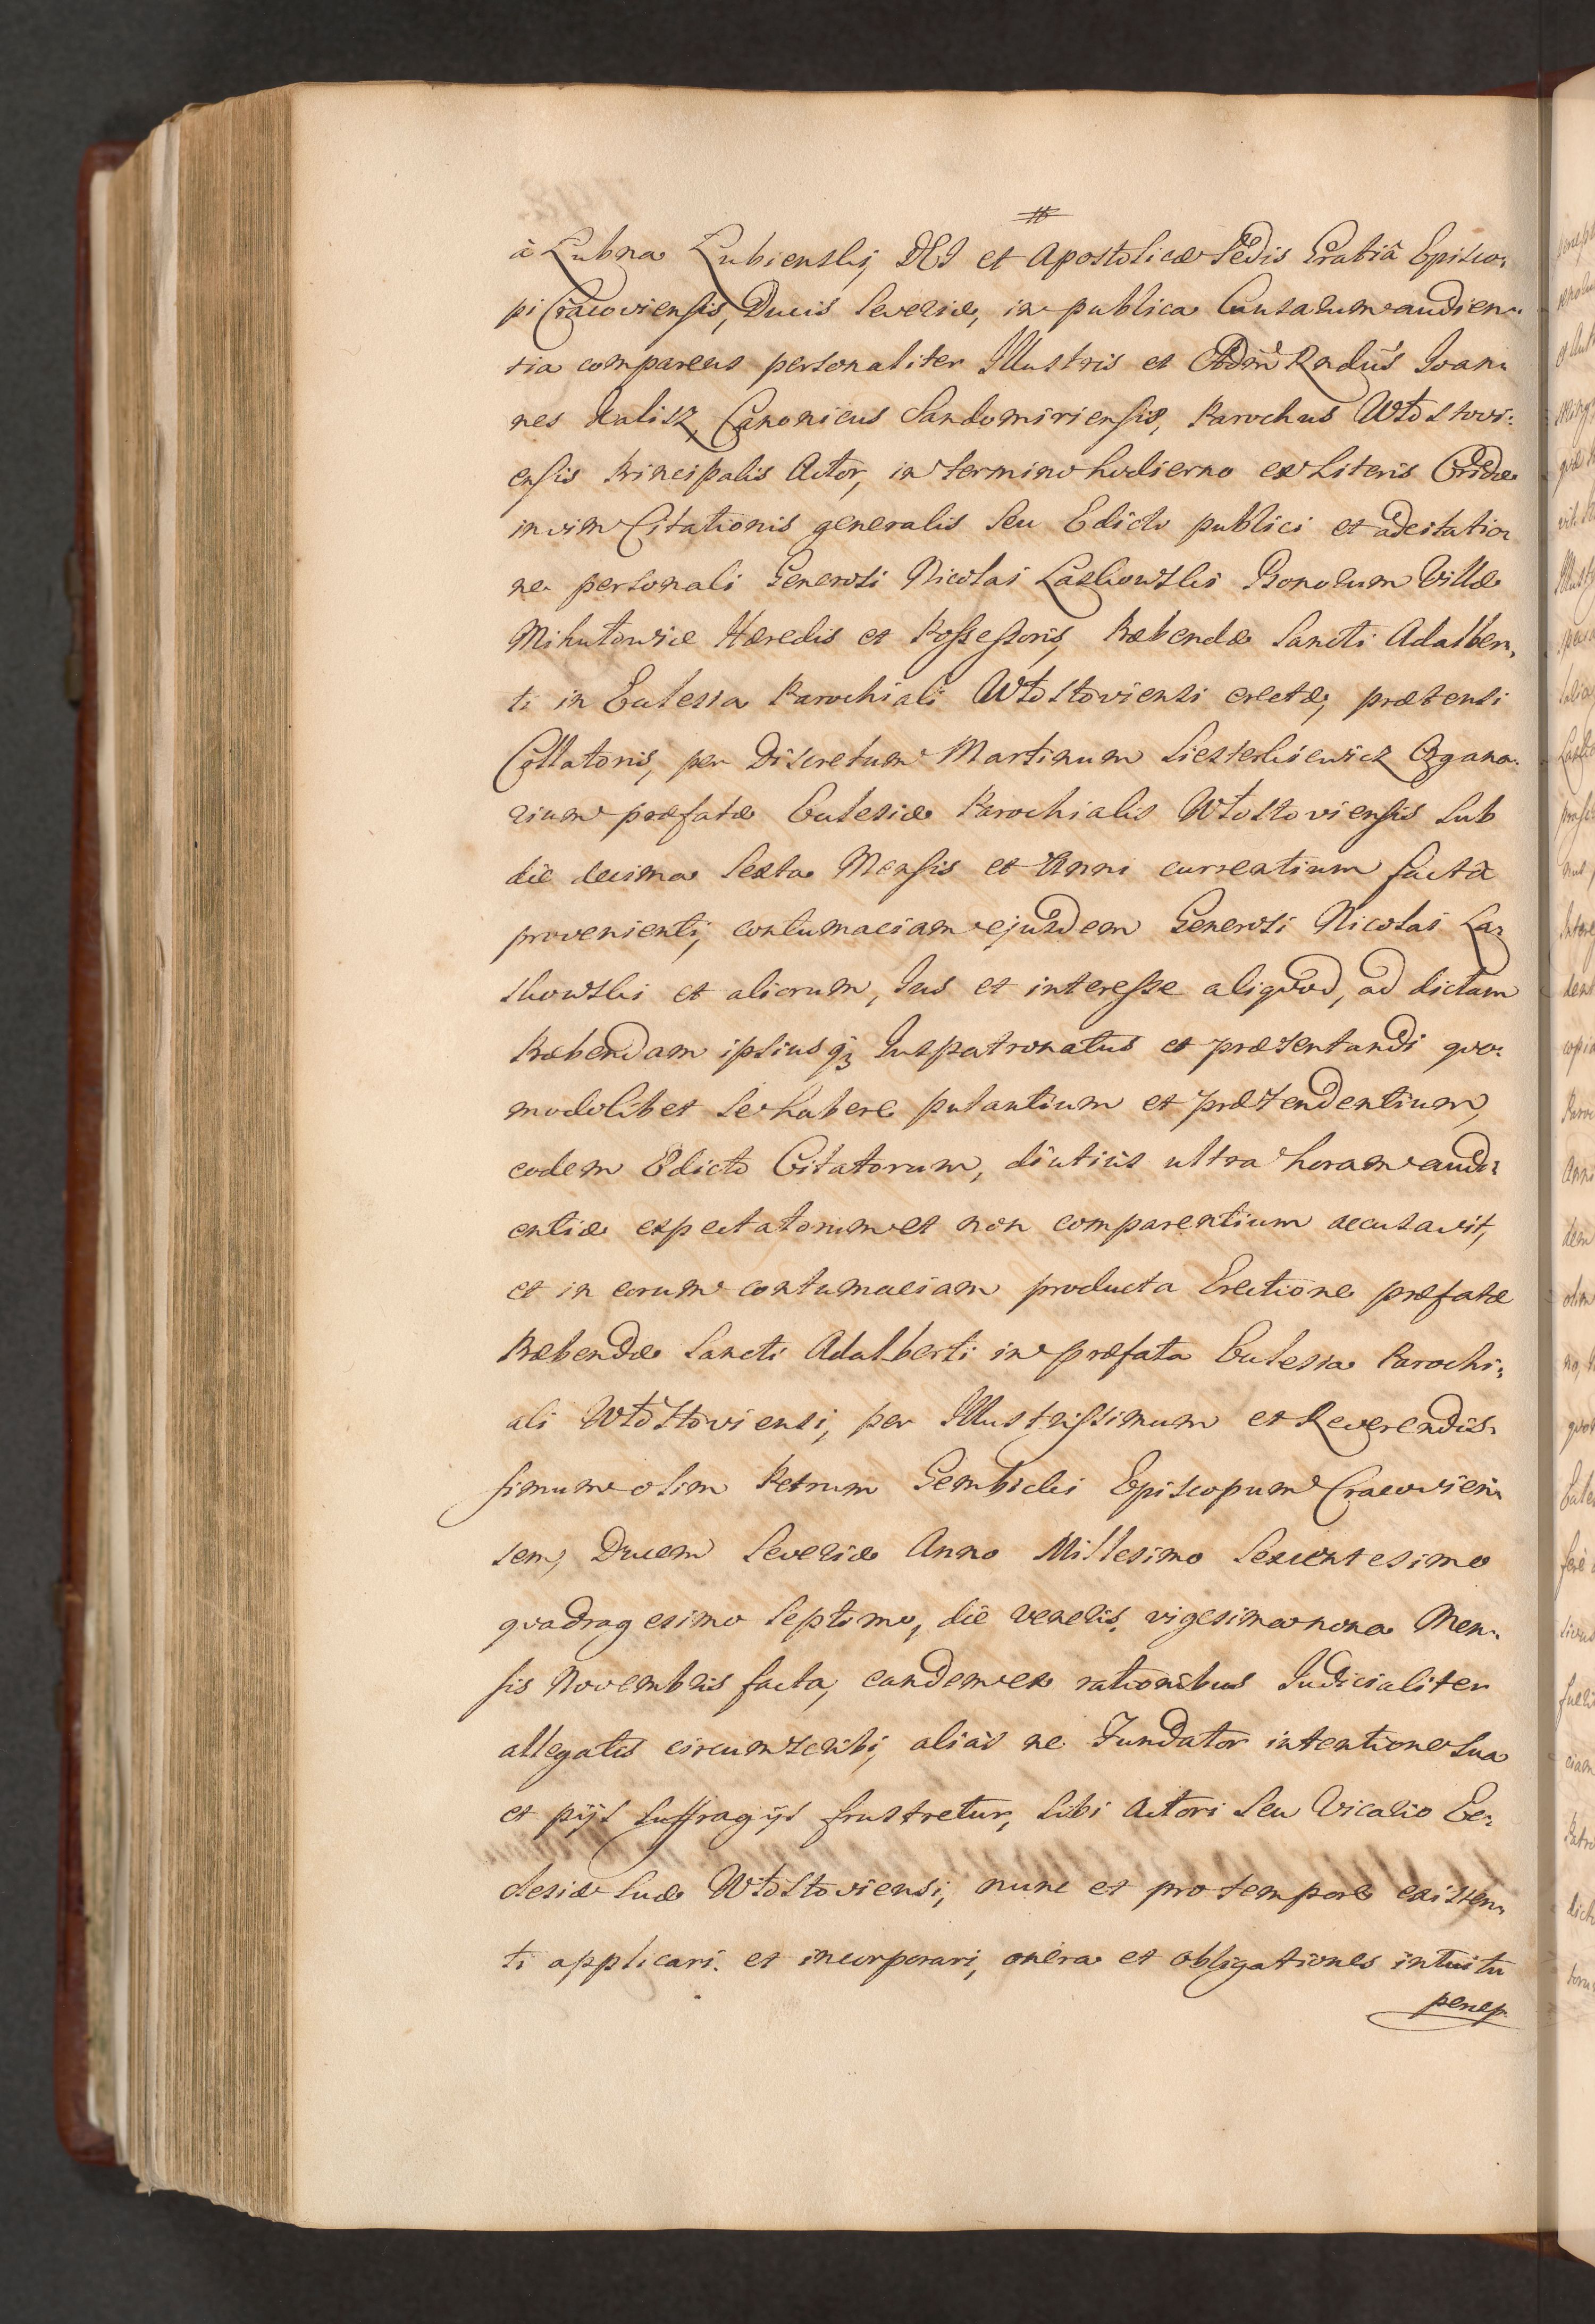 à Lubna Lubienski, DEI et Apostolicæ Sedis Gratiâ Episco-
pi Cracoviensis, Ducis Severiæ, in publica Causarum audien-
tia comparens personaliter Illustris et Adm Rndus Joan-
nes Kalisz, Canonicus Sandomiriensis, Parochus Włostovi-
ensis Principalis Actor, in termino hodierno ex Literis Cridæ
in vim Citationis generalis seu Edicto publici et adcitatio-
ne personali Generosi Nicolai Laskowski Bonorum Villæ
Mikułowice Hæredis et Possessoris, Præbendæ Sancti Adalber-
ti in Ecclesia Parochiali Włostoviensi erectæ, prætensi
Collatoris, per Discretum Martinum Siesterkiewicz Organa-
rium præfatæ Ecclesiæ Parochialis Włostoviensis sub
die decima sexta Mensis et Anni currentium facta
provenienti, contumaciam ejusdem Generosi Nicolai La-
skowski et aliorum, Jus et interesse aliquod, ad dictam
Præbendam ipsiusq3 Juspatronatus et præsentandi quo-
modolibet se habere putantium et prætendentium,
eodem Edicto Citatorum, diutius ultra horam audi-
entiæ expectatorum et non comparentium accusavit,
et in eorum contumaciam producta Erectione præfatæ
Præbendæ Sancti Adalberti in præfata Ecclesia Parochi-
ali Włostoviensi, per Illustrissimum et Reverendis-
simum olim Petrum Gembicki Episcopum Cracovien-
sem, Ducem Severiæ Anno Millesimo Sexcentesimo
quadragesimo septimo, die veneris, vigesima nona Men-
sis Novembris facta, eandem ex rationibus Judicialiter
allegatis circumscribi, aliàs ne Fundator intentione sua
et pijs suffragijs frustretur, sibi Actori seu Vicario Ec-
clesiæ suæ Włostoviensi, nunc et pro tempore existen-
ti applicari et incorporari, onera et obligationes intuitu